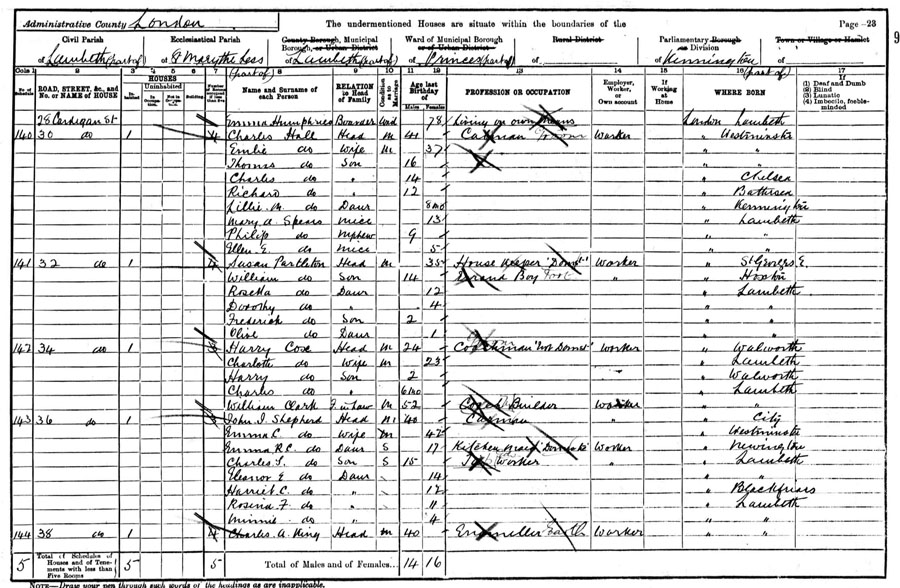 Administrative County London
The undermentioned Houses are situate within the boundaries of the
Page—23
9
Civil Parish
Ecclesiastical Parish
County Borough, Municipal Borough, or Urban District
Ward of Municipal Borough or of Urban District
Rural District
Parliamentary Borough or Division
Town or Village or Hamlet
of Lambeth (part of)
of S Mary the Less (part of)
of Lambeth (part of)
of Princes (part of)
of
of Kennington (part of)
of
Cols 1 2 3 4 5 6 7 8 9 10 11 12 13 14 15 16 17
No. of Schedule
ROAD, STREET, &c., and No. or NAME of HOUSE
HOUSES
Inhabited
Uninhabited
Name and Surname of each Person
RELATION to Head of Family
Condition as to Marriage
Age last Birthday of
Males Females
PROFESSION OR OCCUPATION
Employer, Worker, or Own account
If Working at Home
WHERE BORN
If
(1) Deaf and Dumb
(2) Blind
(3) Lunatic
(4) Imbecile, feeble-minded
28 Cardigan St Emma Humphries Boarder Wid 78 Living on own means London Lambeth
140 30 do 1 4 Charles Hall Head M 41 Carman Worker " Westminster
Emlie do Wife M 37 " "
Thomas do Son 16 " "
Charles do " 14 " Chelsea
Richard do " 12 " Battersea
Lillie M. do Daur 8mo " Kennington
Mary A. Spears Niece 13 " Lambeth
Philip do Nephew 9 " "
Ellen E. do Niece 5 " "
141 32 do 1 4 Susan Partleton Head M 35 House Keeper Domst Worker " St Georges E.
William do Son 14 Errand Boy " " Hoxton
Rosetta do Daur 12 " Lambeth
Dorothy do " 4 " "
Frederick do Son 2 " "
Olive do Daur 1 " "
142 34 do 1 3 Harry Cose Head M 24 Coachman "not Domes" Worker " Walworth
Charlotte do Wife M 23 " Lambeth
Harry do Son 2 " Walworth
Charles do " 6mo " Lambeth
William Clark F in law M 52 Coach Builder Worker " "
143 36 do 1 4 John I. Shepherd Head M 40 Carman " " City
Emma C. do Wife M 42 " Westminster
Emma R.C. do Daur S 17 Kitchen maid Domestic Worker " Newington
Charles S. do Son S 15 Worker " " Lambeth
Eleanor E. do Daur 14 " "
Harriet C. do " 12 " Blackfriars
Rosina F. do " 11 " Lambeth
Minnie do " 4 " "
144 38 do 1 4 Charles A. King Head M 40 Worker " "
5 Total of Schedules of Houses and of Tenements with less than Five Rooms 5 5 Total of Males and of Females... 14 16
NOTE—Draw your pen through such words of the headings as are inapplicable.